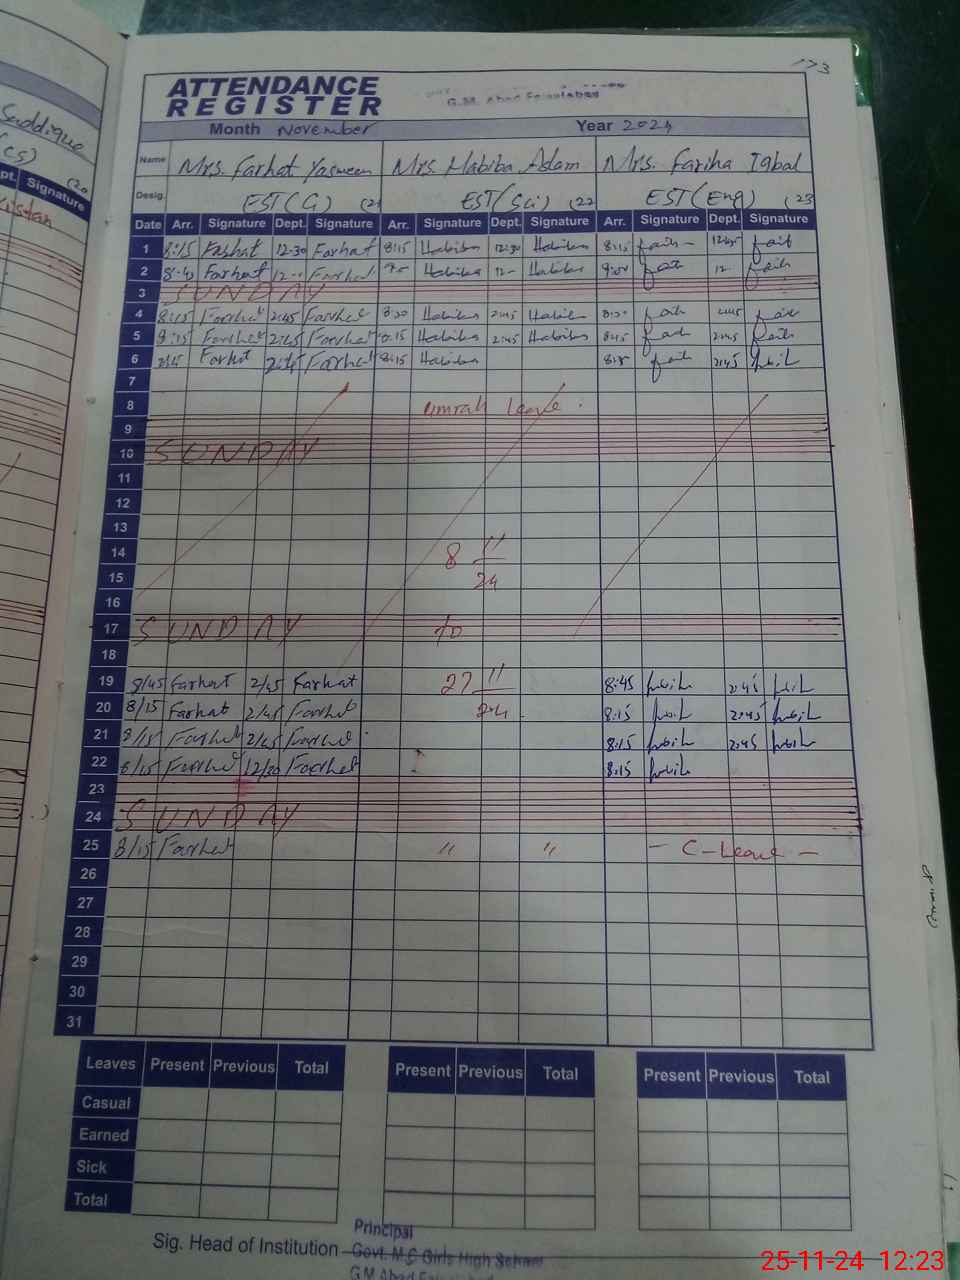 173
Suddique
(CS)
pt. Signature
ATTENDANCE
REGISTER
G.M. Abad Faisalabad
Month November Year 2024
Name Mrs. Farhat Yasmeen Mrs. Habiba Adam Mrs. Fariha Iqbal
Desig. EST(G) (21 EST(Sci) (22 EST(Eng) (23
Date Arr. Signature Dept. Signature Arr. Signature Dept. Signature Arr. Signature Dept. Signature
1 8:15 Farhat 12:30 Farhat 8:15 Habiba 12:30 Habiba 8:15
2 8:45 Farhat 12 Farhat Habiba 12 Habiba 12
3 SUNDAY
4 8:15 Farhat 2:45 Farhat 8:20 Habiba 2:45 Habiba 2:45
5 8:15 Farhat 2:45 Farhat 8:15 Habiba 2:45 Habiba 8:15 2:45
6 Farhat 2:45 Farhat 8:15 Habiba 2:45
7
8 umrah leave.
9
10 SUNDAY
11
12
13
14 8 11
15 24
16
17 SUNDAY to
18
19 8/45 Farhat 2/45 Farhat 27 11 8:45 2:45
20 8/15 Farhat 2/45 Farhat 24 8:15 2:45
21 8/15 Farhat 2/45 Farhat 8:15 2:45
22 8/15 Farhat 12/30 Farhat 8:15
23
24 SUNDAY
25 8/15 Farhat " " - C-Leave -
26
27
28
29
30
31
Leaves Present Previous Total Present Previous Total Present Previous Total
Casual
Earned
Sick
Total
Sig. Head of Institution
Principal
Govt. M.C Girls High School
G.M Abad Faisalabad
25-11-24 12:23